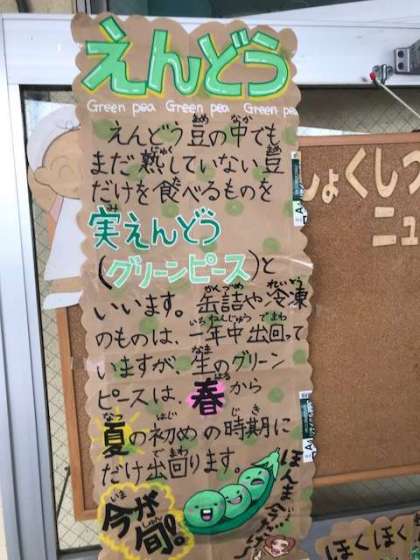 えんどう
Green pea Green pea Green pea
えんどう豆の中でも
まだ熟していない豆
だけを食べるものを
実えんどう
(グリーンピース)と
いいます。缶詰や冷凍
のものは、一年中出回って
いますが、生のグリーン
ピースは、春から
夏の初めの時期に
だけ出回ります。
今が
旬。
しょくしつ
ニュ
ほくほく